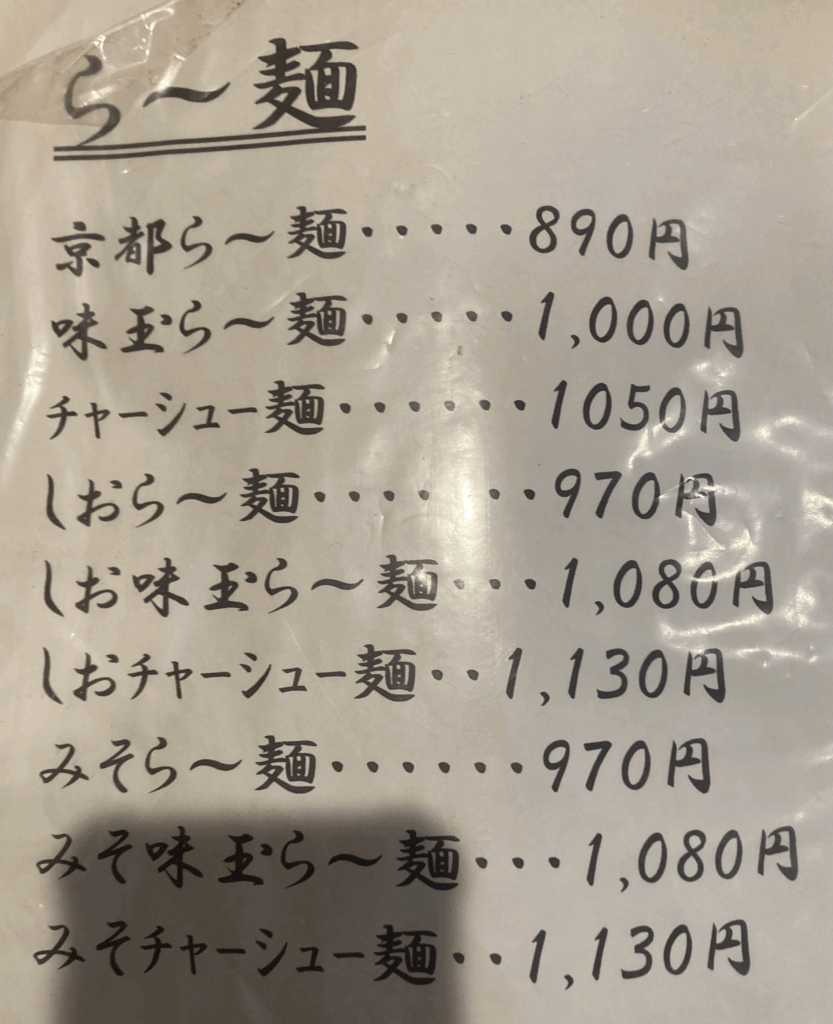 ら〜麺
京都ら〜麺・・・・・890円
味玉ら〜麺・・・・・1,000円
チャーシュー麺・・・・・・1050円
しおら〜麺・・・・ ・・970円
しお味玉ら〜麺・・・1,080円
しおチャーシュー麺・・1,130円
みそら〜麺・・・・・・970円
みそ味玉ら〜麺・・・1,080円
みそチャーシュー麺・・1,130円